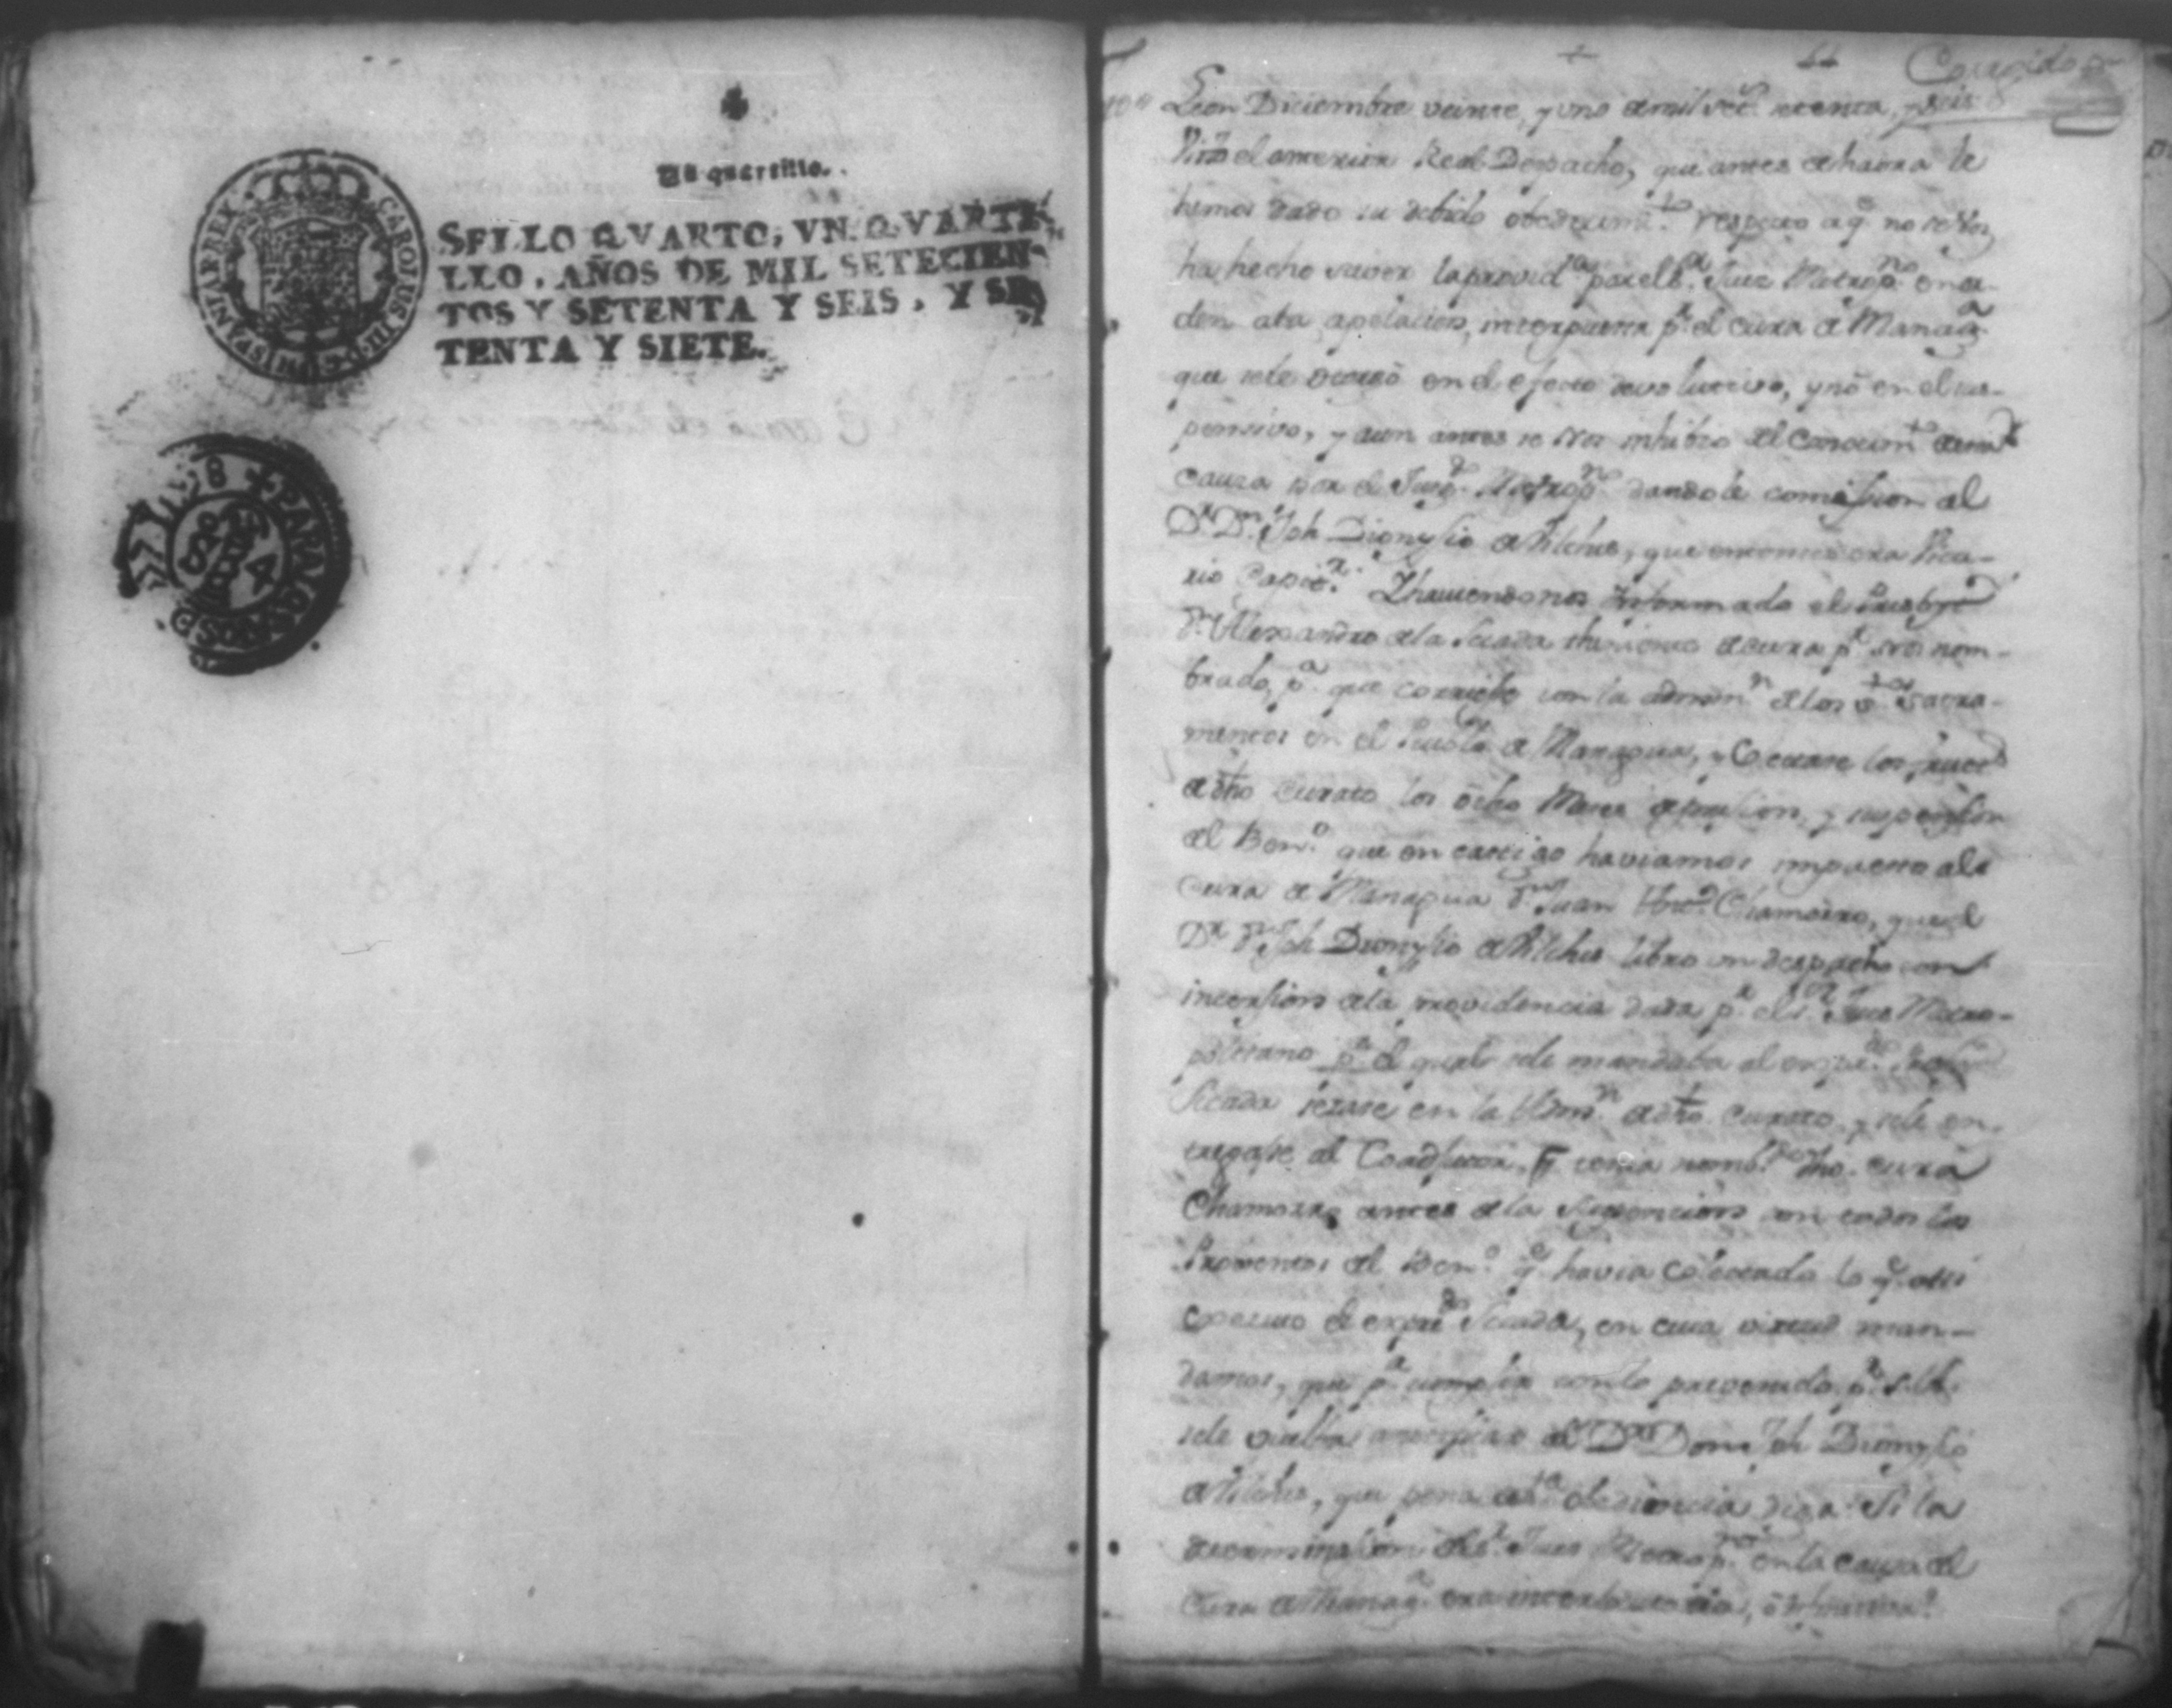 Un quartillo.
SELLO QVARTO, VN QVARTI-
LLO, AÑOS DE MIL SETECIEN-
TOS Y SETENTA Y SEIS, Y SE-
TENTA Y SIETE.
CAROLUS III D G HISPANIAR REX
PARA LOS
Corregido
Leon Diciembre veinte, y uno de mil set.s setenta, y seis
el anterior Real Despacho, que antes de haora le
hemos dado su debido obedecim.to respecto a q.e no se nos
ha hecho saver la provid.a por el S.r Juez Metrop.no en or-
den a la apelacion, interpuesta p.r el cura de Manag.a
que se le otorgó en el efecto devolutivo, y nó en el sus-
pensivo, y aun antes se nos inhibio del conocim.to de esta
causa por el Juez Metrop.no dandole comission al
D.r D.n Joh Dionysio de Vilches, que entonces era Vica-
rio Capit.r Y haviendonos Informado el Presby.o
D.n Alexandro de la theniente de cura p.r nos nom-
brado, p.a que corriesse con la admin.n de los S.tos Sacra-
mentos en el Pueblo de Managua, y
dho Curato los ocho Meses de prision, y suspension
del Ben.o que en castigo haviamos impuesto al
Cura de Managua D.n Juan Chamorro, que el
D.r D.n Joh Dionysio de Vilches libro un despacho con
incersion de la providencia dada p.r el S.r Juez Metro-
politano p.r el qual se le mandaba al expre.do
cezase en la Adm.n de dho Curato, y se le en-
tregase al Coadjutor, q.e tenia nomb.do dho cura
Chamorro antes de la Suspencion con todos los
Proventos del Ben.o q.e havia colectado lo q.e assi
executo el expre.do en cuia virtud man-
damos, que p.a cumplir con lo prevenido p.r S.A.
se le vuelba al D.r Don Joh Dionysio
de Vilches, que pena de S.ta obediencia diga Si la
determinasion del S.r Juez Metrop.no en la causa del
Cura de Manag.a era incerlocutoria, ó